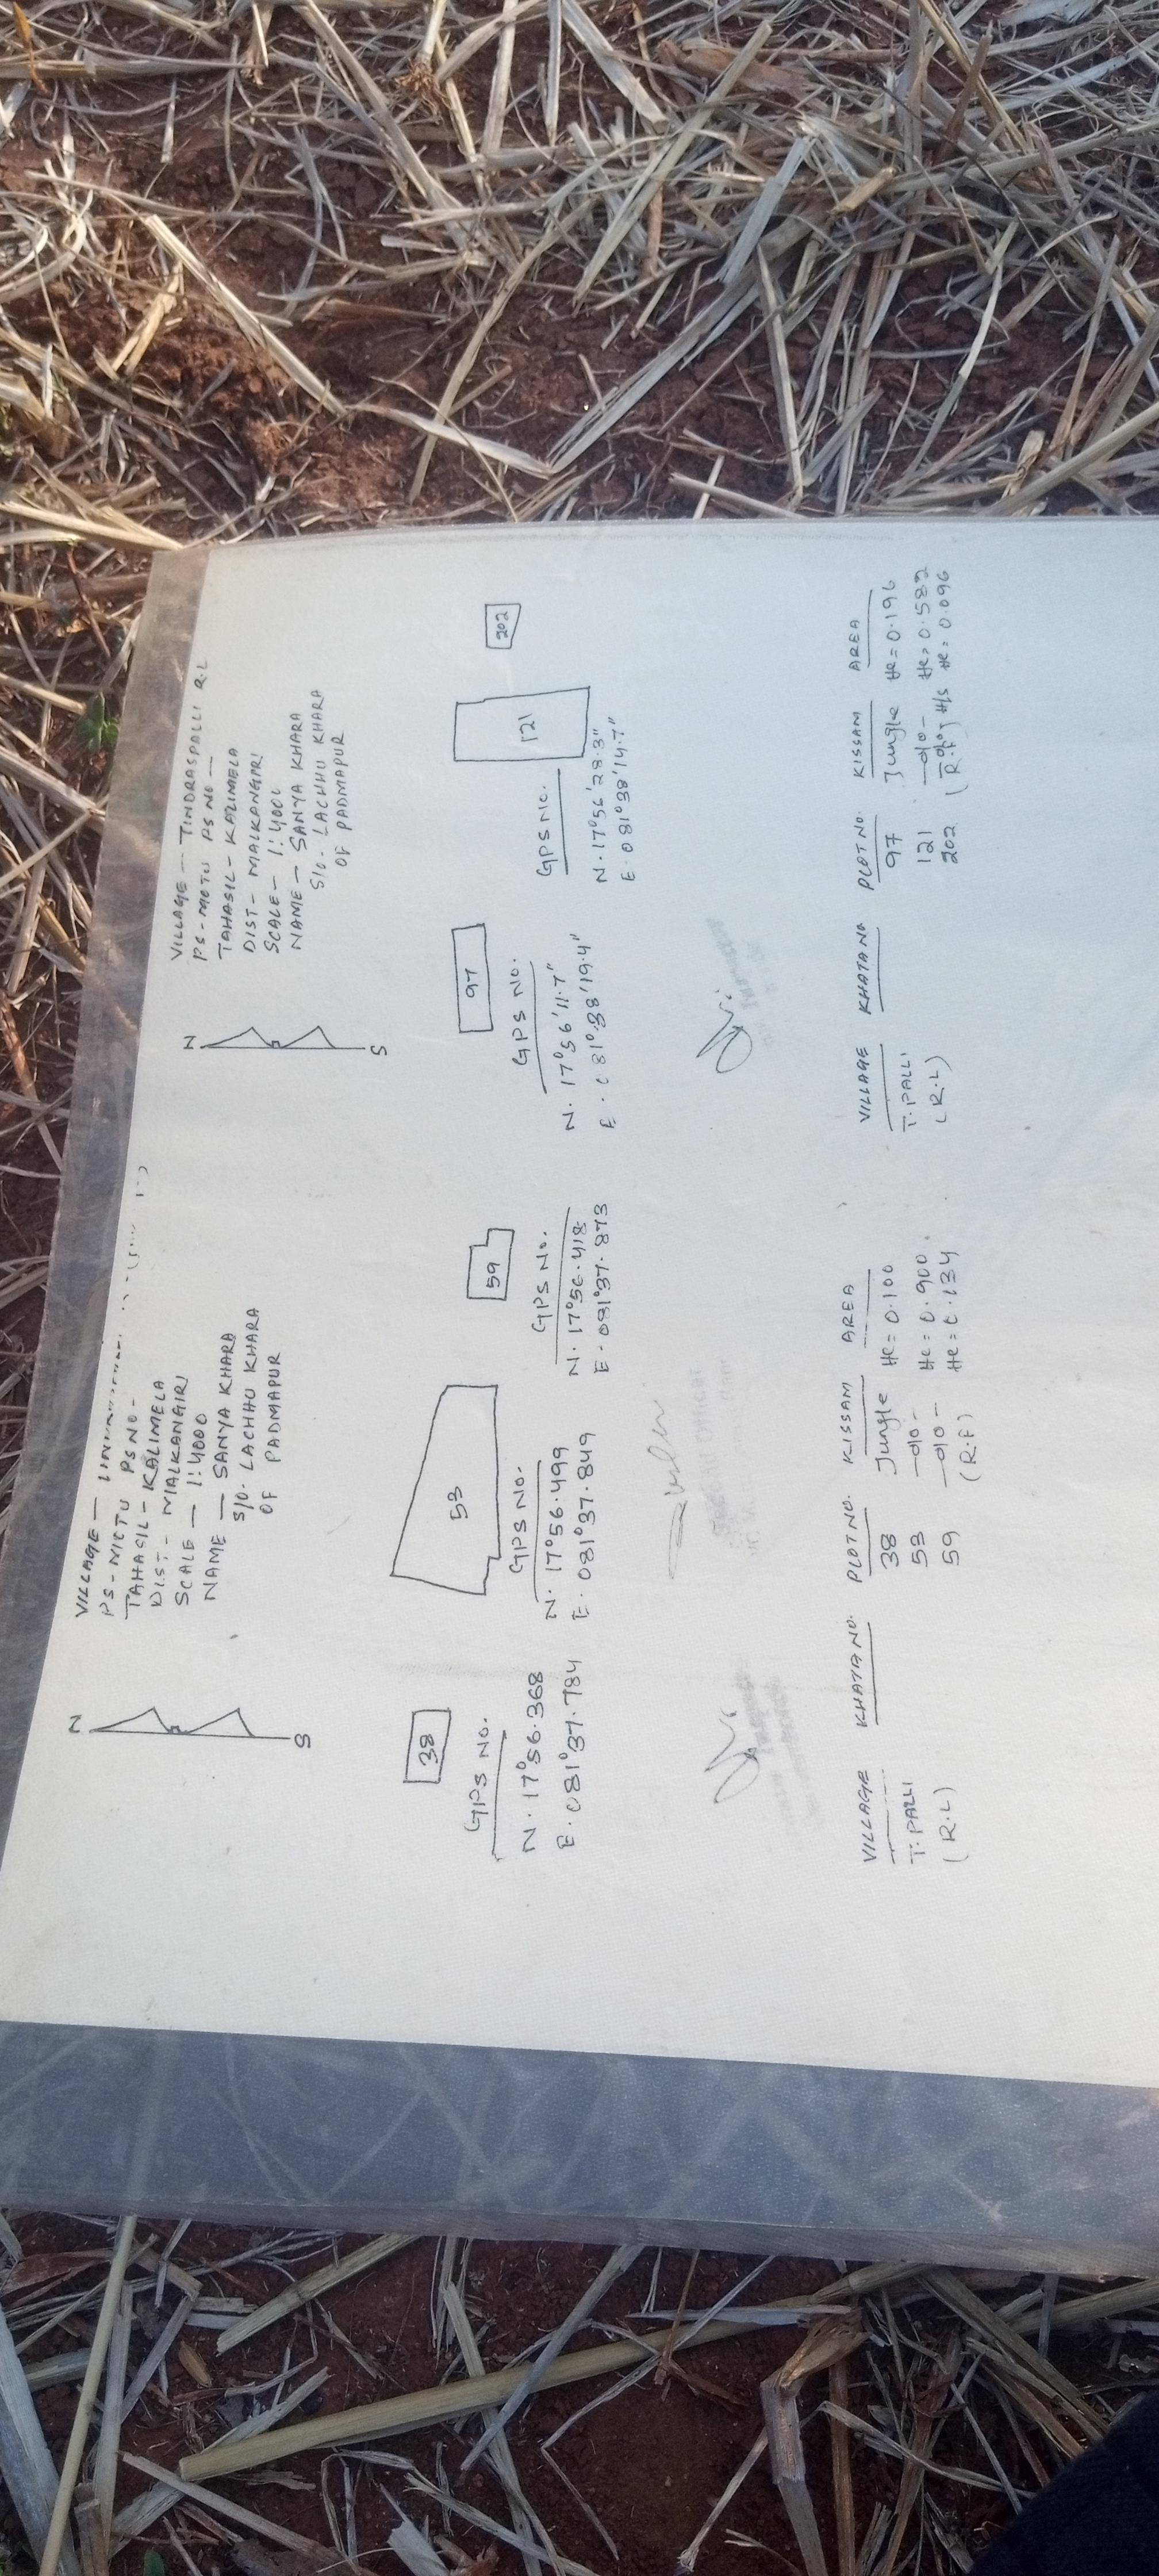 VILLAGE —
PS - MOTU PS NO -
TAHASIL - KALIMELA
DIST - MALKANGIRI
SCALE — 1:4000
NAME — SANYA KHARA
S/O. LACHHU KHARA
OF PADMAPUR
N
S
38
GPS NO.
N. 17°56.368
E. 081°37.784
53
GPS NO.
N. 17°56.499
E. 081°37.849
59
GPS NO.
N. 17°56.418
E. 081°37.873
VILLAGE KHATA NO. PLOT NO. KISSAM AREA
T. PALLI 38 Jungle He = 0.100
(R.L) 53 —do— He = 0.900
59 —do— He = 0.134
(R.F)
VILLAGE — TINDRASPALLI R.L
PS - MOTU PS NO —
TAHASIL - KALIMELA
DIST - MALKANGIRI
SCALE - 1:4000
NAME — SANYA KHARA
S/O. LACHHU KHARA
OF PADMAPUR
N
S
97
GPS NO.
N. 17°56'11.7"
E. 081°38'19.4"
121
GPS NO.
N. 17°56'28.3"
E. 081°38'14.7"
202
VILLAGE KHATA NO PLOT NO. KISSAM AREA
T. PALLI 97 Jungle He = 0.196
(R.L) 121 —do— He = 0.582
202 —do— H/s He = 0.096
(R.F)